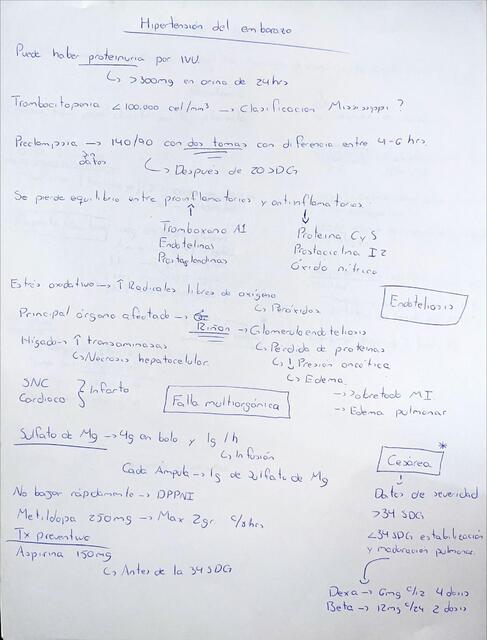 Hipertensión del embarazo
Puede haber proteinuria por IVU.
↳ >300mg en orina de 24hrs
Trombocitopenia <100.000 cel/mm³ → Clasificación Mississippi ?
Preclampsia → 140/90 con dos tomas con diferencia entre 4-6 hrs.
↳ Después de 20 SDG
Se pierde equilibrio entre proinflamatorios y antinflamatorios.
Tromboxano A1
Endotelinas
Prostaglandinas
Proteina C y S
Prostaciclina I2
Óxido nítrico
Estrés oxidativo → ↑ Radicales libres de oxígeno
↳ Peróxidos
Endoteliosis
Principal órgano afectado → Riñon → Glomeruloendoteliosis
↳ Pérdida de proteínas
↳ ↓ Presion oncótica
↳ Edema
→ Sobretodo M.I.
→ Edema pulmonar
Hígado → ↑ transaminasas
↳ Necrosis hepatocelular.
SNC
Cardiaco } Infarto
Falla multiorgánica
Sulfato de Mg → 4g en bolo y 1g /h
↳ Infusión
Cada Ámpula → 1g de Sulfato de Mg
No bajar rápidamente → DPPNI
Metildopa 250mg → Max 2gr. c/8hrs
Tx preventivo
Aspirina 150mg
↳ Antes de la 34 SDG
Cesárea *
Datos de severidad
>34 SDG
<34 SDG estabilización
y maduración pulmonar.
Dexa → 6mg c/12 4 dosis
Beta → 12mg c/24 2 dosis